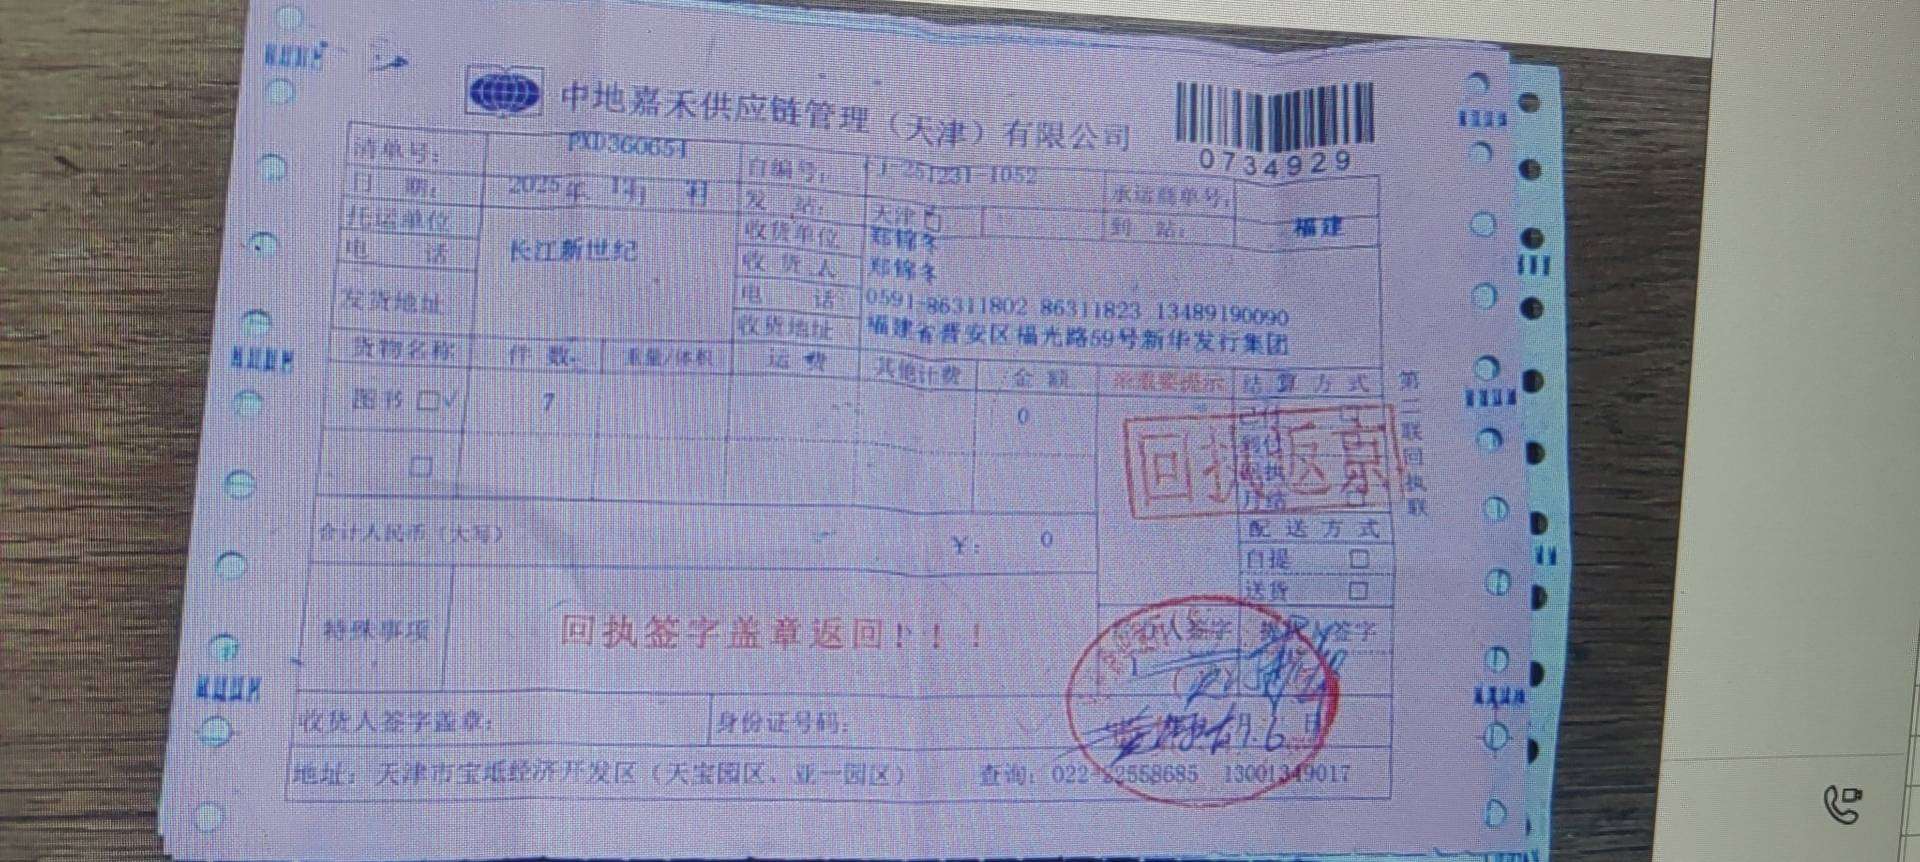 中地嘉禾供应链管理（天津）有限公司
0734929
清单号： PXD360651 自编号： 251231-1052 承运商单号：
日 期： 2025年 12月 发 站： 天津 到 站： 福建
托运单位 长江新世纪 收货单位 郑锦冬
电 话 收 货 人 郑锦冬
电 话 0591-86311802 86311823 13489190090
发货地址 收货地址 福建省晋安区福光路59号新华发行集团
货物名称 件 数 重量/体积 运 费 其他计费 金 额 重要提示 结 算 方 式
图书 □√ 7 0 已付 □
到付
回执返京
月结 □
□
第二联回执联
合计人民币（大写） ￥： 0 配 送 方 式
自提 □
送货 □
特殊事项 回执签字盖章返回！！！
认签字 签字
收货人签字盖章： 身份证号码：
6
地址：天津市宝坻经济开发区（天宝园区、亚一园区） 查询：022-22558685 13001349017